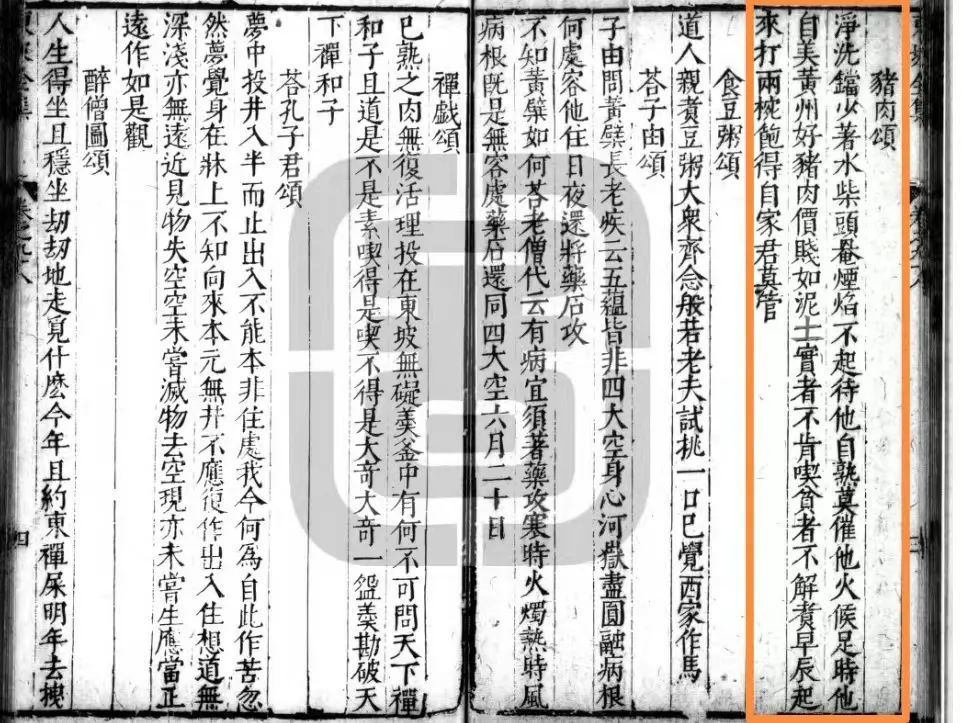 豬肉頌
淨洗鐺少著水柴頭罨煙焰不起待他自熟莫催他火候足時他
自美黃州好豬肉價賤如泥土實者不肯喫貧者不解煑早辰起
來打兩椀飽得自家君莫管
食豆粥頌
道人親煑豆粥大衆齊念般若老夫試挑一口已覺西家作馬
荅子由頌
子由問黃檗長老疾云五蘊皆非四大空身心河嶽盡圓融病根
何處容他住日夜還將藥石攻
不知黃檗如何荅老僧代云有病宜須著藥攻寒時火燭熱時風
病根既是無容處藥石還同四大空六月二十日
禪戯頌
已熟之肉無復活理投在東坡無礙羹釜中有何不可問天下禪
和子且道是不是素喫得是喫不得是大奇大奇一盌羹勘破天
下禪和子
荅孔子君頌
夢中投井入半而止出入不能本非住處我今何為自此作苦忽
然夢覺身在牀上不知向來本元無井不應復作出入住想道無
深淺亦無遠近見物失空空未嘗滅物去空現亦未嘗生應當正
遠作如是觀
醉僧圖頌
人生得坐且穩坐劫劫地走覓什麽今年且約東禪屎明年去拽